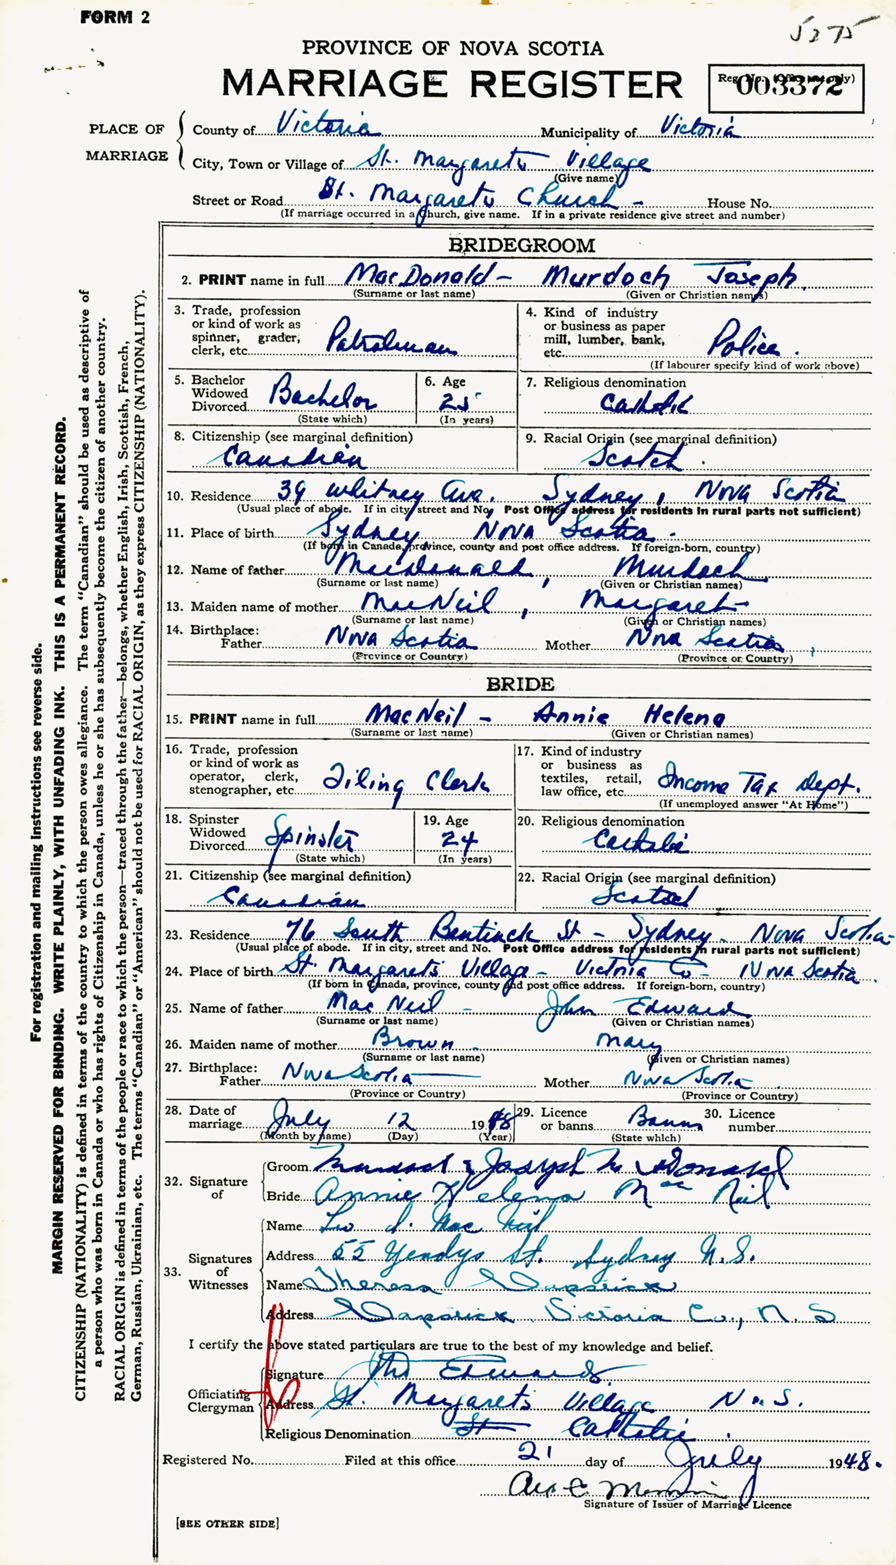 FORM 2
5275
PROVINCE OF NOVA SCOTIA
MARRIAGE REGISTER
Reg. No. (Office use only)
003372
PLACE OF MARRIAGE
County of Victoria Municipality of Victoria
City, Town or Village of St. Margarets Village
(Give name)
Street or Road St. Margarets Church - House No.
(If marriage occurred in a church, give name. If in a private residence give street and number)
BRIDEGROOM
2. PRINT name in full MacDonald - Murdoch Joseph
(Surname or last name) (Given or Christian names)
3. Trade, profession or kind of work as spinner, grader, clerk, etc. Patrolman
4. Kind of industry or business as paper mill, lumber, bank, etc. Police.
(If labourer specify kind of work above)
5. Bachelor Widowed Divorced Bachelor
(State which)
6. Age 25
(In years)
7. Religious denomination Catholic
8. Citizenship (see marginal definition) Canadian
9. Racial Origin (see marginal definition) Scotch.
10. Residence 39 Whitney Ave. Sydney, Nova Scotia
(Usual place of abode. If in city, street and No. Post Office address for residents in rural parts not sufficient)
11. Place of birth Sydney Nova Scotia.
(If born in Canada, province, county and post office address. If foreign-born, country)
12. Name of father Macdonald, Murdoch
(Surname or last name) (Given or Christian names)
13. Maiden name of mother MacNeil, Margaret
(Surname or last name) (Given or Christian names)
14. Birthplace:
Father Nova Scotia Mother Nova Scotia
(Province or Country) (Province or Country)
BRIDE
15. PRINT name in full MacNeil - Annie Helena
(Surname or last name) (Given or Christian names)
16. Trade, profession or kind of work as operator, clerk, stenographer, etc. Filing Clerk
17. Kind of industry or business as textiles, retail, law office, etc. Income Tax Dept.
(If unemployed answer "At Home")
18. Spinster Widowed Divorced Spinster
(State which)
19. Age 24
(In years)
20. Religious denomination Catholic
21. Citizenship (see marginal definition) Canadian
22. Racial Origin (see marginal definition) Scotch
23. Residence 76 South Bentinck St - Sydney. Nova Scotia
(Usual place of abode. If in city, street and No. Post Office address for residents in rural parts not sufficient)
24. Place of birth St. Margarets Village - Victoria Co - Nova Scotia
(If born in Canada, province, county and post office address. If foreign-born, country)
25. Name of father MacNeil - John Edward
(Surname or last name) (Given or Christian names)
26. Maiden name of mother Brown Mary
(Surname or last name) (Given or Christian names)
27. Birthplace:
Father Nova Scotia Mother Nova Scotia
(Province or Country) (Province or Country)
28. Date of marriage July 12 1948
(Month by name) (Day) (Year)
29. Licence or banns Banns
(State which)
30. Licence number
32. Signature of
Groom Murdoch Joseph McDonald
Bride Annie Helena MacNeil
33. Signatures of Witnesses
Name Leo J. MacNeil
Address 55 Yendys St. Sydney N.S.
Name Theresa
Address Victoria Co., N.S
I certify the above stated particulars are true to the best of my knowledge and belief.
Officiating Clergyman
Signature
Address St. Margarets Village N.S.
Religious Denomination St Catholic.
Registered No. Filed at this office 21 day of July 1948.
Signature of Issuer of Marriage Licence
[SEE OTHER SIDE]
For registration and mailing instructions see reverse side.
MARGIN RESERVED FOR BINDING. WRITE PLAINLY, WITH UNFADING INK. THIS IS A PERMANENT RECORD.
CITIZENSHIP (NATIONALITY) is defined in terms of the country to which the person owes allegiance. The term "Canadian" should be used as descriptive of
a person who was born in Canada or who has rights of Citizenship in Canada, unless he or she has subsequently become the citizen of another country.
RACIAL ORIGIN is defined in terms of the people or race to which the person—traced through the father—belongs, whether English, Irish, Scottish, French,
German, Russian, Ukrainian, etc. The terms "Canadian" or "American" should not be used for RACIAL ORIGIN, as they express CITIZENSHIP (NATIONALITY).